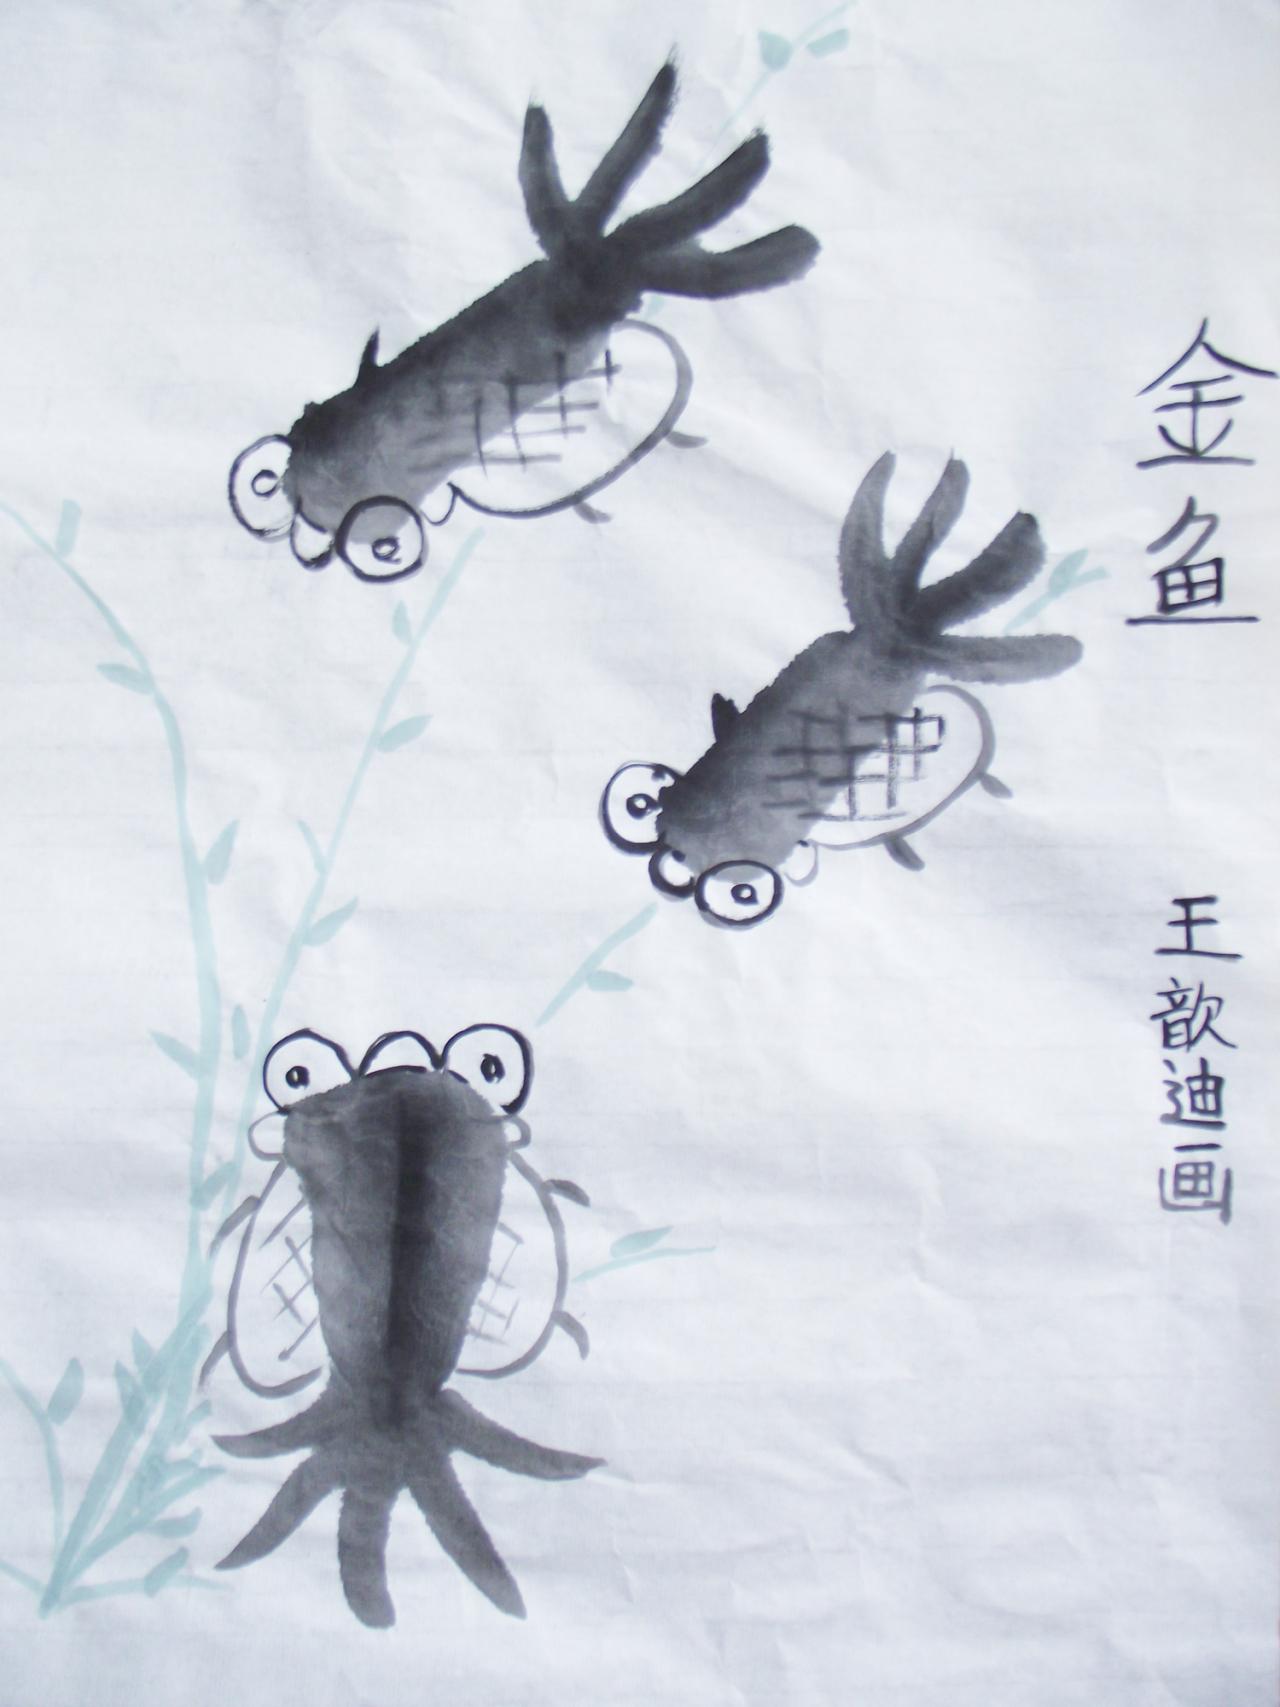 金鱼
王歆迪画